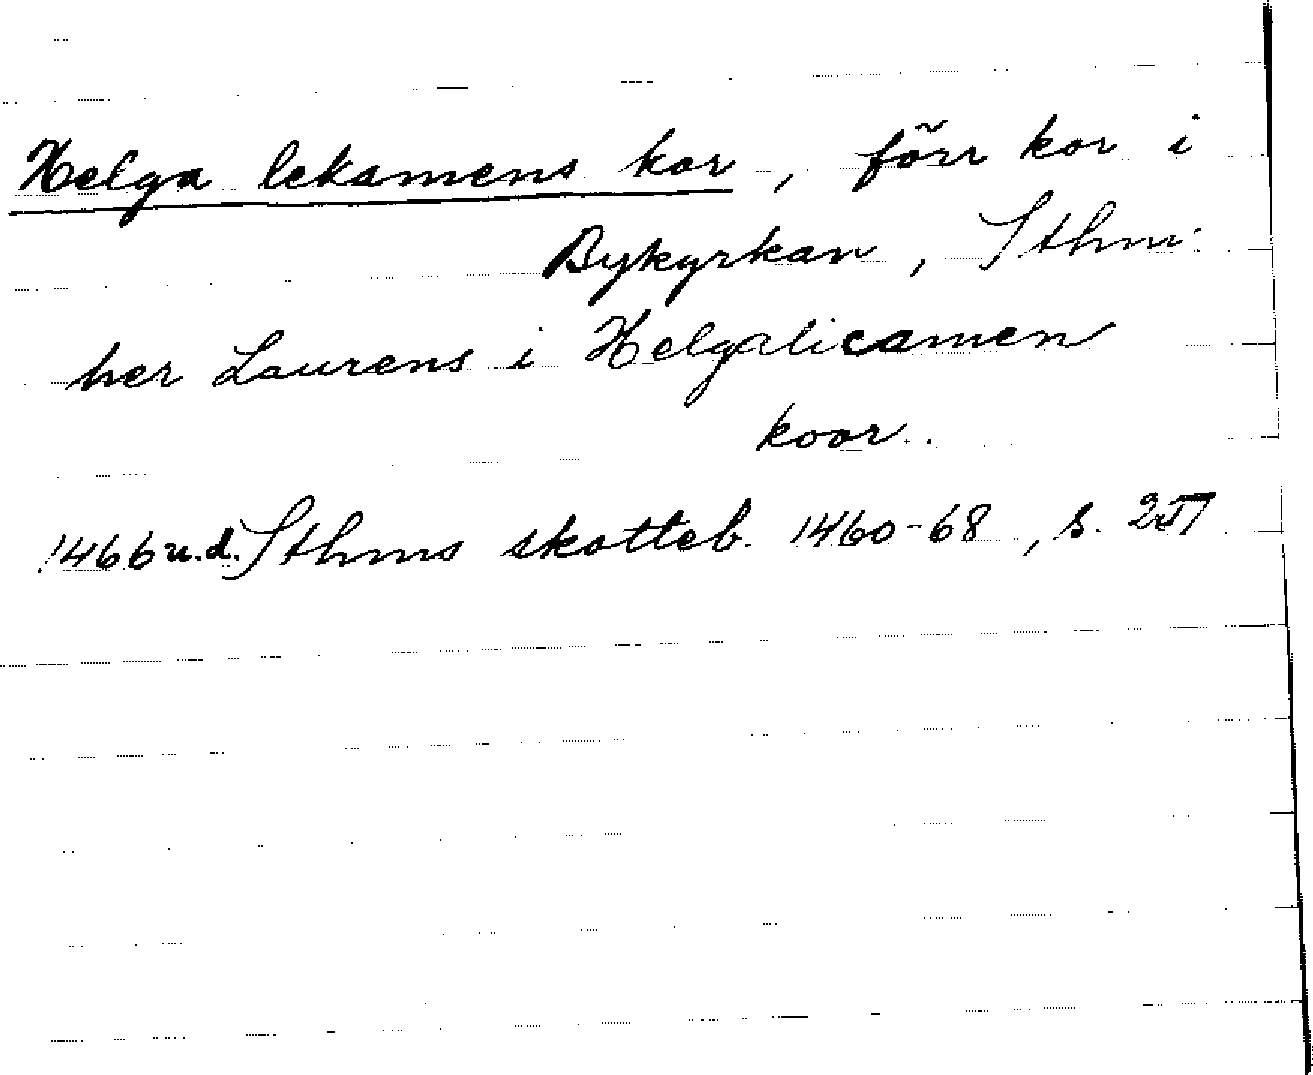 Helga lekamens kor, förr kor i
Bykyrkan, Sthm.
her Laurens i Helgalicamen
koor.
1466 u.d. Sthms skotteb. 1460-68, s.